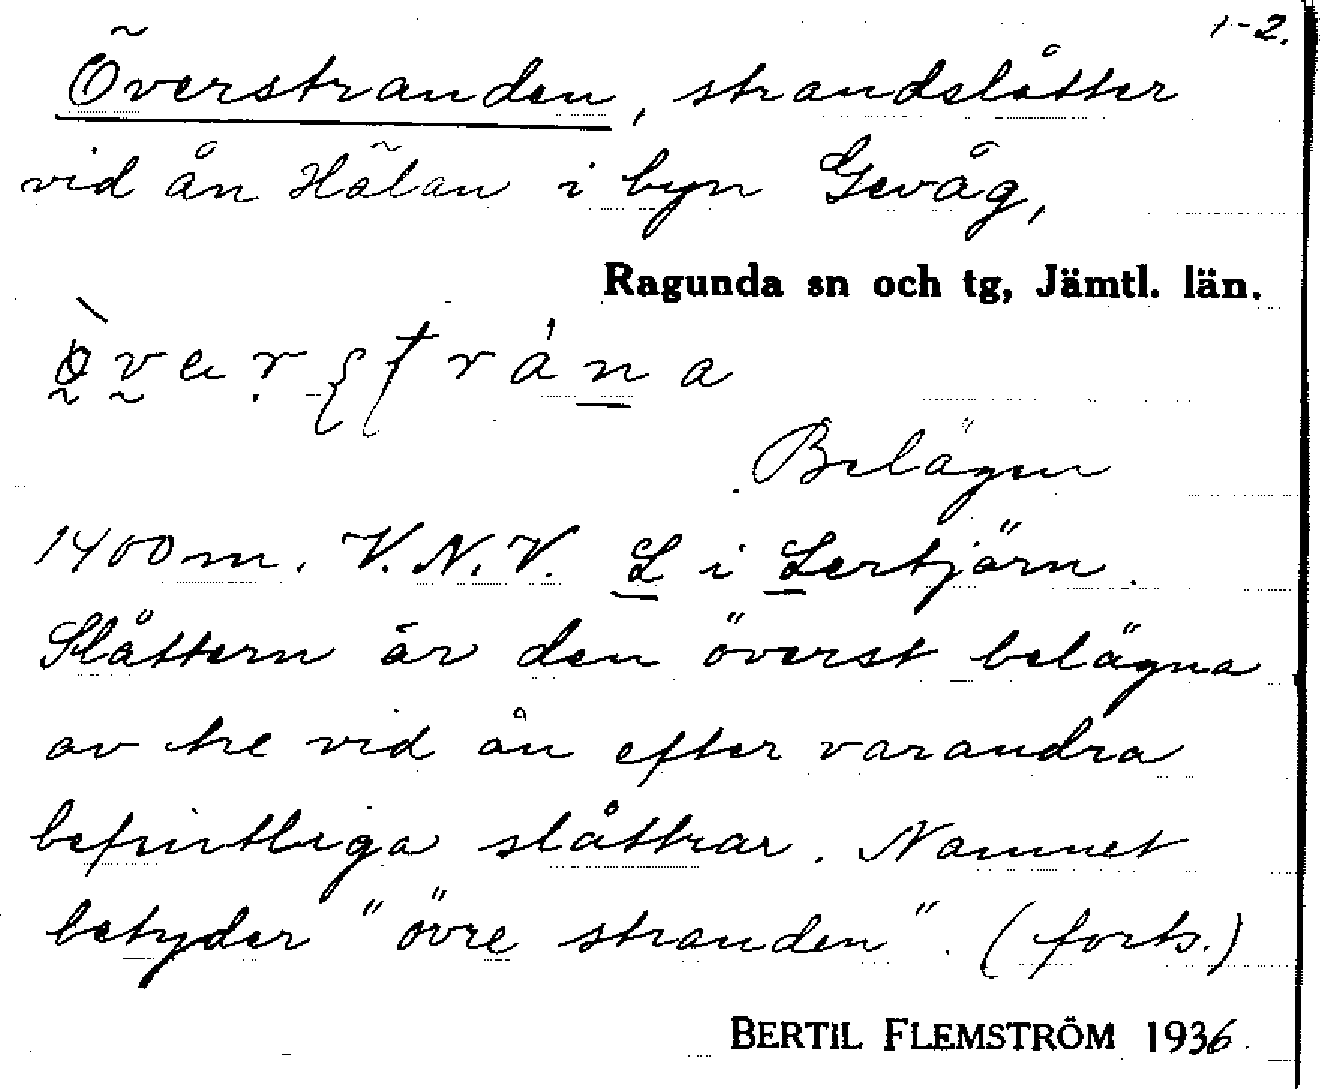 1-2.
Överstranden, strandslåtter
vid ån Hälan i byn Gevåg,
Ragunda sn och tg, Jämtl. län.
Belägen
1400 m. V.N.V. L i Lertjärn.
Slåttern är den överst belägna
av tre vid ån efter varandra
befintliga slåttrar. Namnet
betyder "övre stranden". (forts.)
BERTIL FLEMSTRÖM 1936.